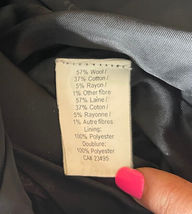 57% Wool/
37% Cotton/
5% Rayon/
1% Other fibre
57% Laine/
37% Coton/
5% Rayonne/
1% Autre fibres
Lining:
100% Polyester
Doublure:
100% Polyester
CA# 23495